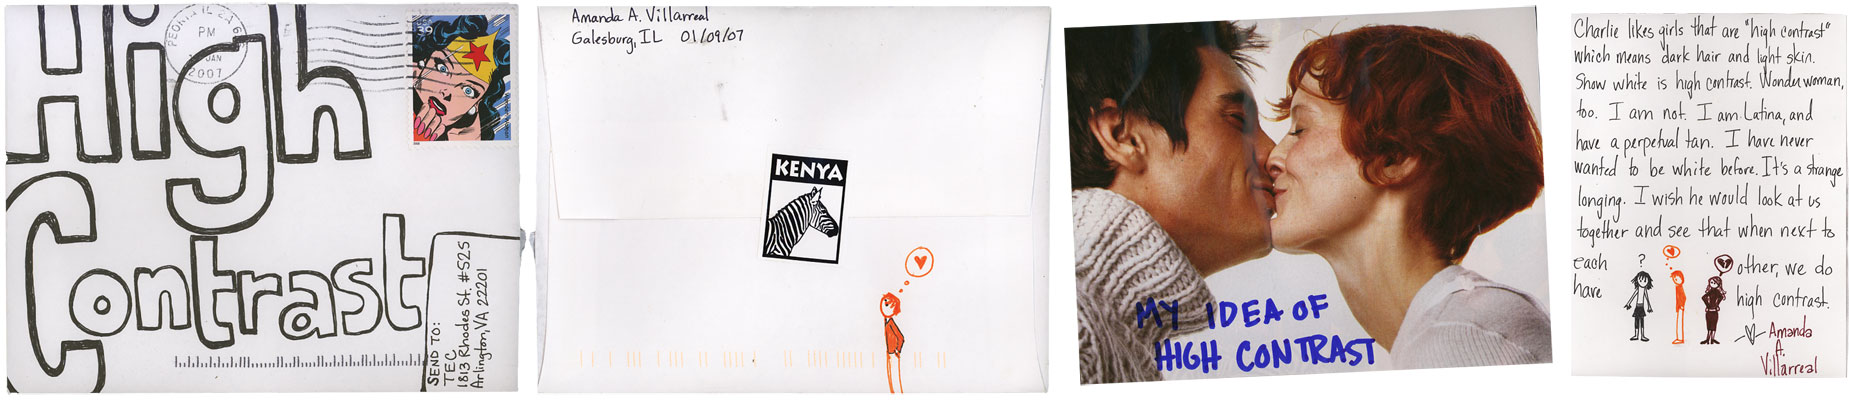 High
Contrast
PEORIA IL
PM
JAN
2007
39
SEND TO:
TEC
1813 Rhodes St. #525
Arlington, VA 22201
Amanda A. Villarreal
Galesburg, IL 01/09/07
KENYA
MY IDEA OF
HIGH CONTRAST
Charlie likes girls that are "high contrast"
which means dark hair and light skin.
Snow white is high contrast. Wonder woman,
too. I am not. I am Latina, and
have a perpetual tan. I have never
wanted to be white before. It's a strange
longing. I wish he would look at us
together and see that when next to
each other, we do
have high contrast.
?
Amanda
A.
Villarreal